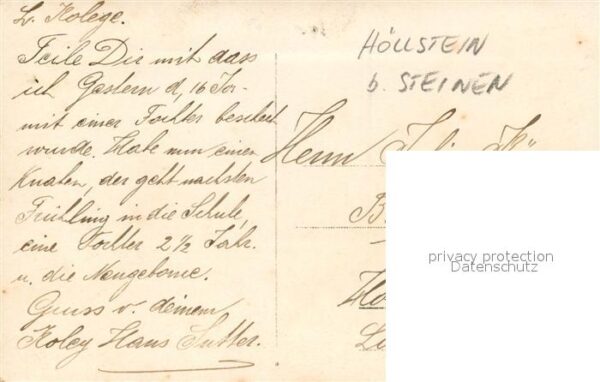 L. Kolege.
Teile Dir mit dass
ich Gestern d, 16 Jan-
mit einer Tochter beschert
wurde. Habe nun einen
Knaben, der geht nachsten
Frühling in die Schule,
eine Tochter 2 1/2 Jahr.
u. die Neugeborne.
Gruss v. deinem
Koleg Hans Sutter.
HÖLLSTEIN
b. STEINEN
Herrn
privacy protection
Datenschutz